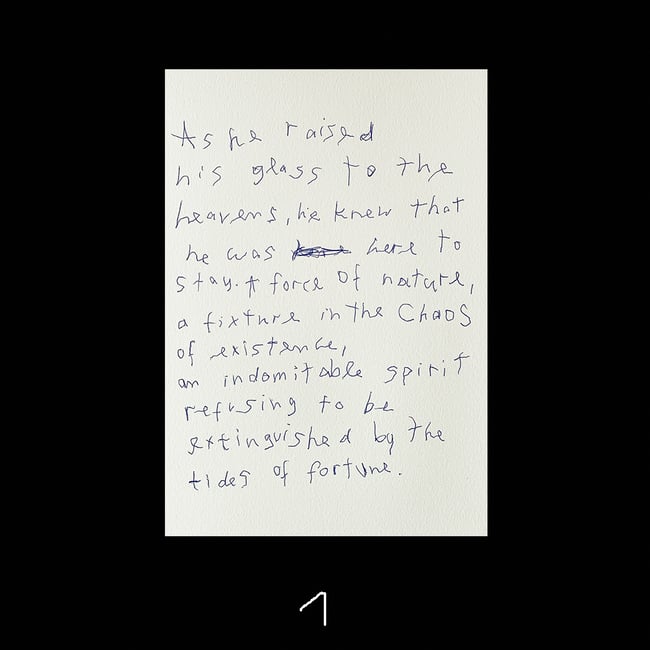 As he raised
his glass to the
heavens, he knew that
he was here to
stay. A force of nature,
a fixture in the Chaos
of existence,
an indomitable spirit
refusing to be
extinguished by the
tides of fortune.
1